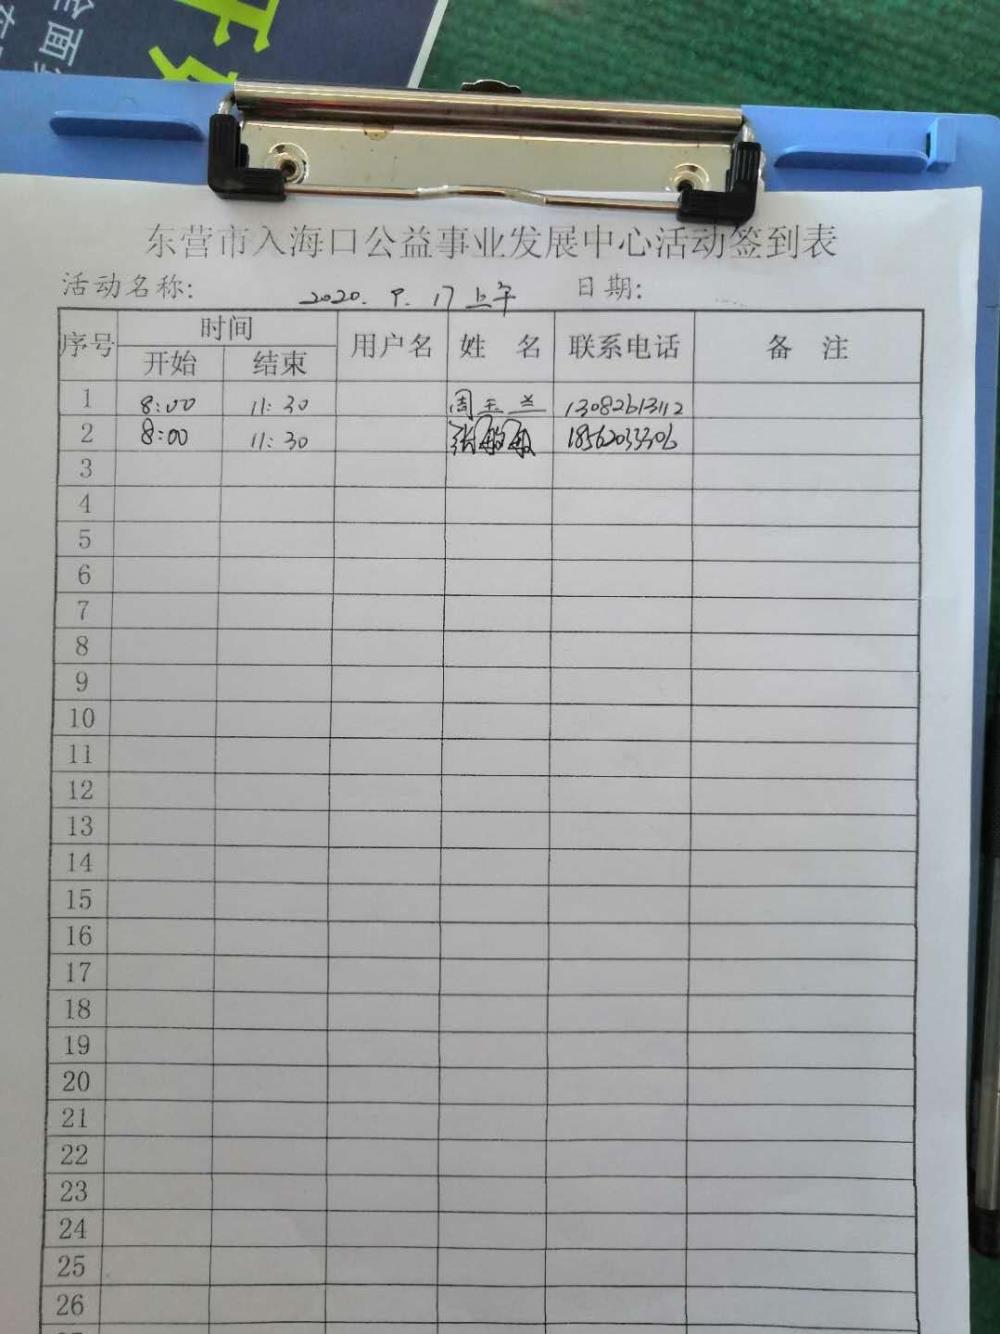 面
东营市入海口公益事业发展中心活动签到表
活动名称: 2020. 9. 17 上午 日期:
序号 时间 用户名 姓 名 联系电话 备 注
开始 结束
1 8:00 11:30 周玉兰 13082613112
2 8:00 11:30 张敏敏 18562033306
3
4
5
6
7
8
9
10
11
12
13
14
15
16
17
18
19
20
21
22
23
24
25
26